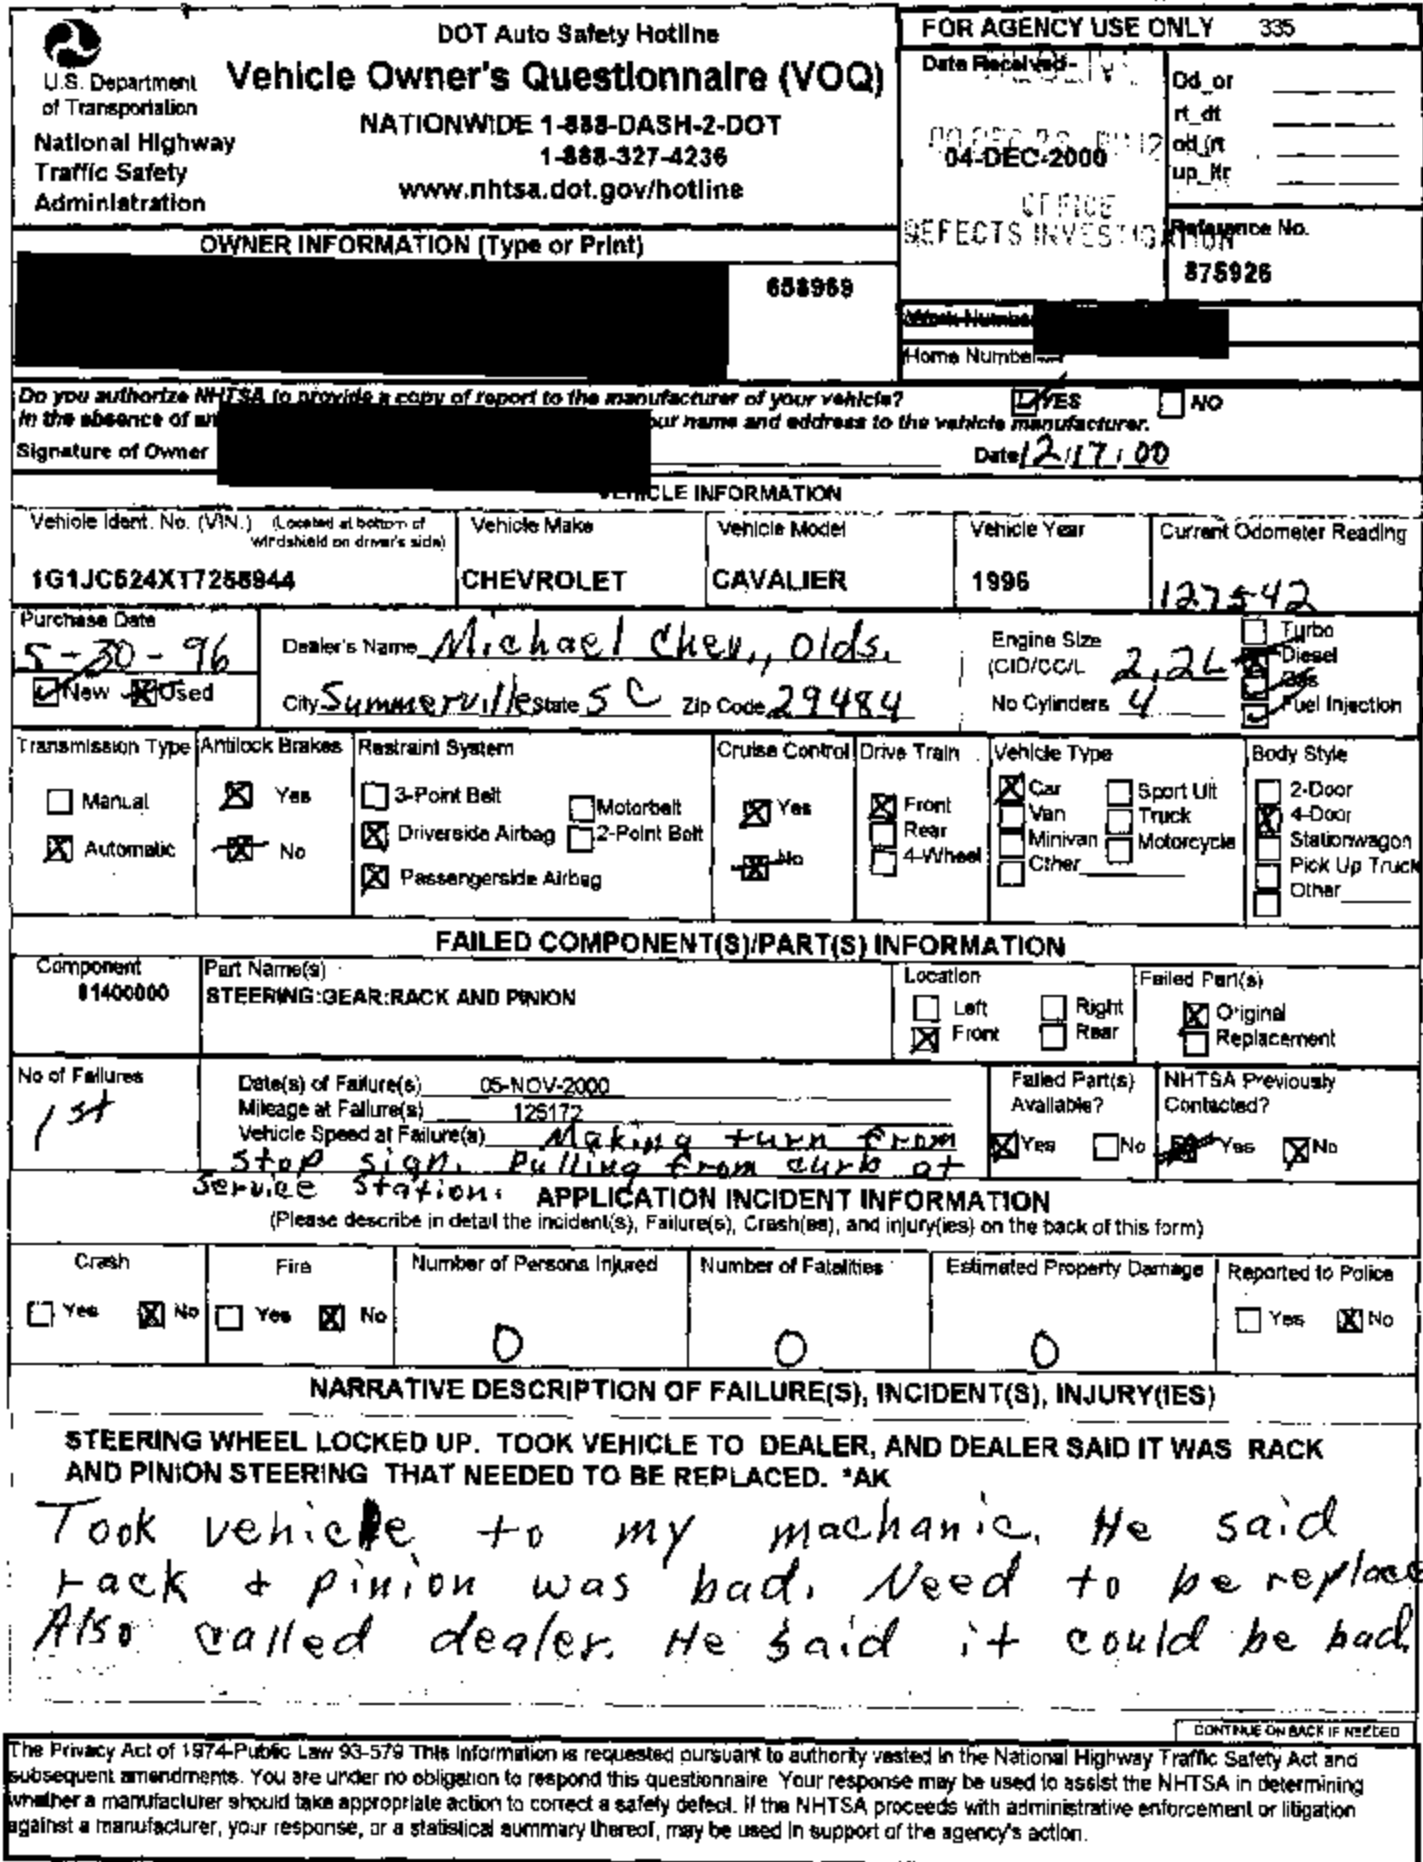 DOT Auto Safety Hotline
Vehicle Owner's Questionnaire (VOQ)
NATIONWIDE 1-888-DASH-2-DOT
1-888-327-4236
www.nhtsa.dot.gov/hotline
U.S. Department
of Transportation
National Highway
Traffic Safety
Administration
FOR AGENCY USE ONLY 335
Date Received
04-DEC-2000
OFFICE
DEFECTS INVESTIGATION
Od_or
rt_dt
od_rt
up_ltr
Reference No.
875926
OWNER INFORMATION (Type or Print)
658969
Work Number
Home Number
Do you authorize NHTSA to provide a copy of report to the manufacturer of your vehicle? YES NO
In the absence of an our name and address to the vehicle manufacturer.
Signature of Owner Date 12/17/00
VEHICLE INFORMATION
Vehicle Ident. No. (VIN.) (Located at bottom of
windshield on driver's side)
1G1JC524XT7258944
Vehicle Make
CHEVROLET
Vehicle Model
CAVALIER
Vehicle Year
1996
Current Odometer Reading
127542
Purchase Date
5-30-96
New Used
Dealer's Name Michael Chev., Olds.
City Summerville State SC Zip Code 29484
Engine Size
(CID/CC/L 2.2L
No Cylinders 4
Turbo
Diesel
Gas
Fuel Injection
Transmission Type
Manual
Automatic
Antilock Brakes
Yes
No
Restraint System
3-Point Belt
Motorbelt
Driverside Airbag
2-Point Belt
Passengerside Airbag
Cruise Control
Yes
No
Drive Train
Front
Rear
4-Wheel
Vehicle Type
Car
Van
Minivan
Other
Sport Utl
Truck
Motorcycle
Body Style
2-Door
4-Door
Stationwagon
Pick Up Truck
Other
FAILED COMPONENT(S)/PART(S) INFORMATION
Component
81400000
Part Name(s)
STEERING:GEAR:RACK AND PINION
Location
Left Right
Front Rear
Failed Part(s)
Original
Replacement
No of Failures
1st
Date(s) of Failure(s) 05-NOV-2000
Mileage at Failure(s) 125172
Vehicle Speed at Failure(s) Making turn from
stop sign. Pulling from curb at
service station.
Failed Part(s)
Available?
Yes No
NHTSA Previously
Contacted?
Yes No
APPLICATION INCIDENT INFORMATION
(Please describe in detail the incident(s), Failure(s), Crash(es), and injury(ies) on the back of this form)
Crash
Yes No
Fire
Yes No
Number of Persons Injured
0
Number of Fatalities
0
Estimated Property Damage
0
Reported to Police
Yes No
NARRATIVE DESCRIPTION OF FAILURE(S), INCIDENT(S), INJURY(IES)
STEERING WHEEL LOCKED UP. TOOK VEHICLE TO DEALER, AND DEALER SAID IT WAS RACK
AND PINION STEERING THAT NEEDED TO BE REPLACED. *AK
Took vehicle to my machanic. He said
rack & pinion was bad. Need to be replace
Also called dealer. He said it could be bad.
CONTINUE ON BACK IF NEEDED
The Privacy Act of 1974-Public Law 93-579 This information is requested pursuant to authority vested in the National Highway Traffic Safety Act and
subsequent amendments. You are under no obligation to respond this questionnaire Your response may be used to assist the NHTSA in determining
whether a manufacturer should take appropriate action to correct a safety defect. If the NHTSA proceeds with administrative enforcement or litigation
against a manufacturer, your response, or a statistical summary thereof, may be used in support of the agency's action.